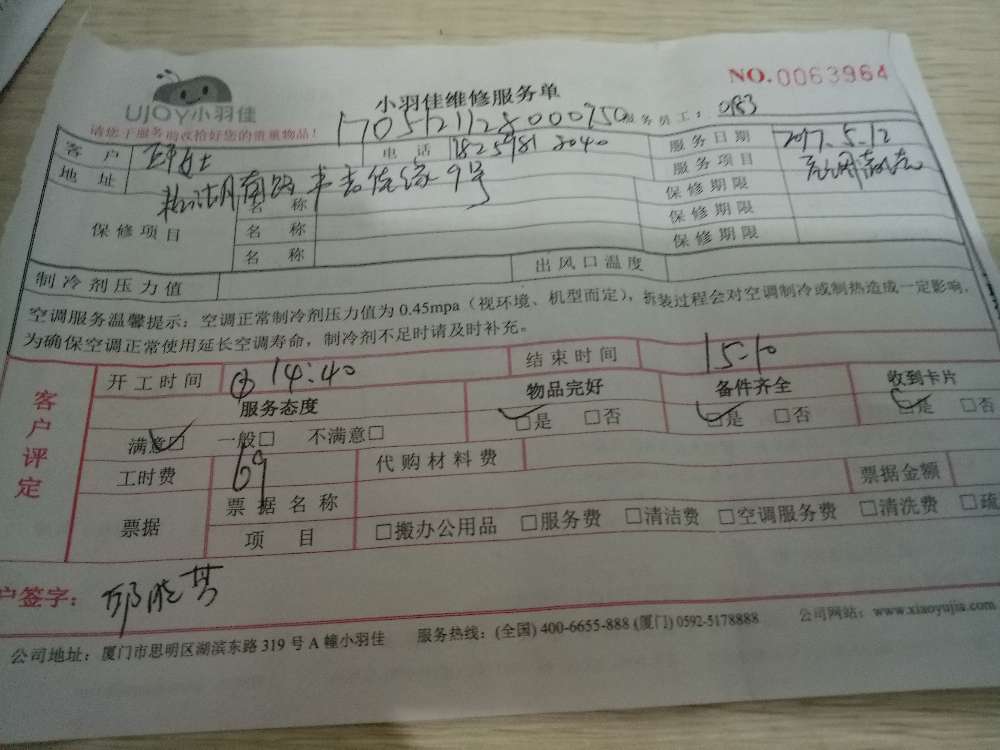 NO.0063964
UJOY小羽佳
小羽佳维修服务单
请您于服务前收拾好您的贵重物品！
1705121125000950
服务员工：083
客 户 女士 电 话 服务日期 2017.5.12
地 址 9号 服务项目
保修项目 名 称 保修期限
名 称 保修期限
名 称 保修期限
制冷剂压力值 出风口温度
空调服务温馨提示：空调正常制冷剂压力值为 0.45mpa（视环境、机型而定），拆装过程会对空调制冷或制热造成一定影响，
为确保空调正常使用延长空调寿命，制冷剂不足时请及时补充。
客户评定
开工时间 14:40 结束时间 15:10
服务态度 物品完好 备件齐全 收到卡片
满意□ 一般□ 不满意□ □是 □否 □是 □否 □是 □否
工时费 69 代购材料费
票据 票据名称 票据金额
项 目 □搬办公用品 □服务费 □清洁费 □空调服务费 □清洗费 □疏
户签字：
公司地址：厦门市思明区湖滨东路 319 号 A 幢小羽佳 服务热线：(全国) 400-6655-888 (厦门) 0592-5178888 公司网站：www.xiaoyujia.com